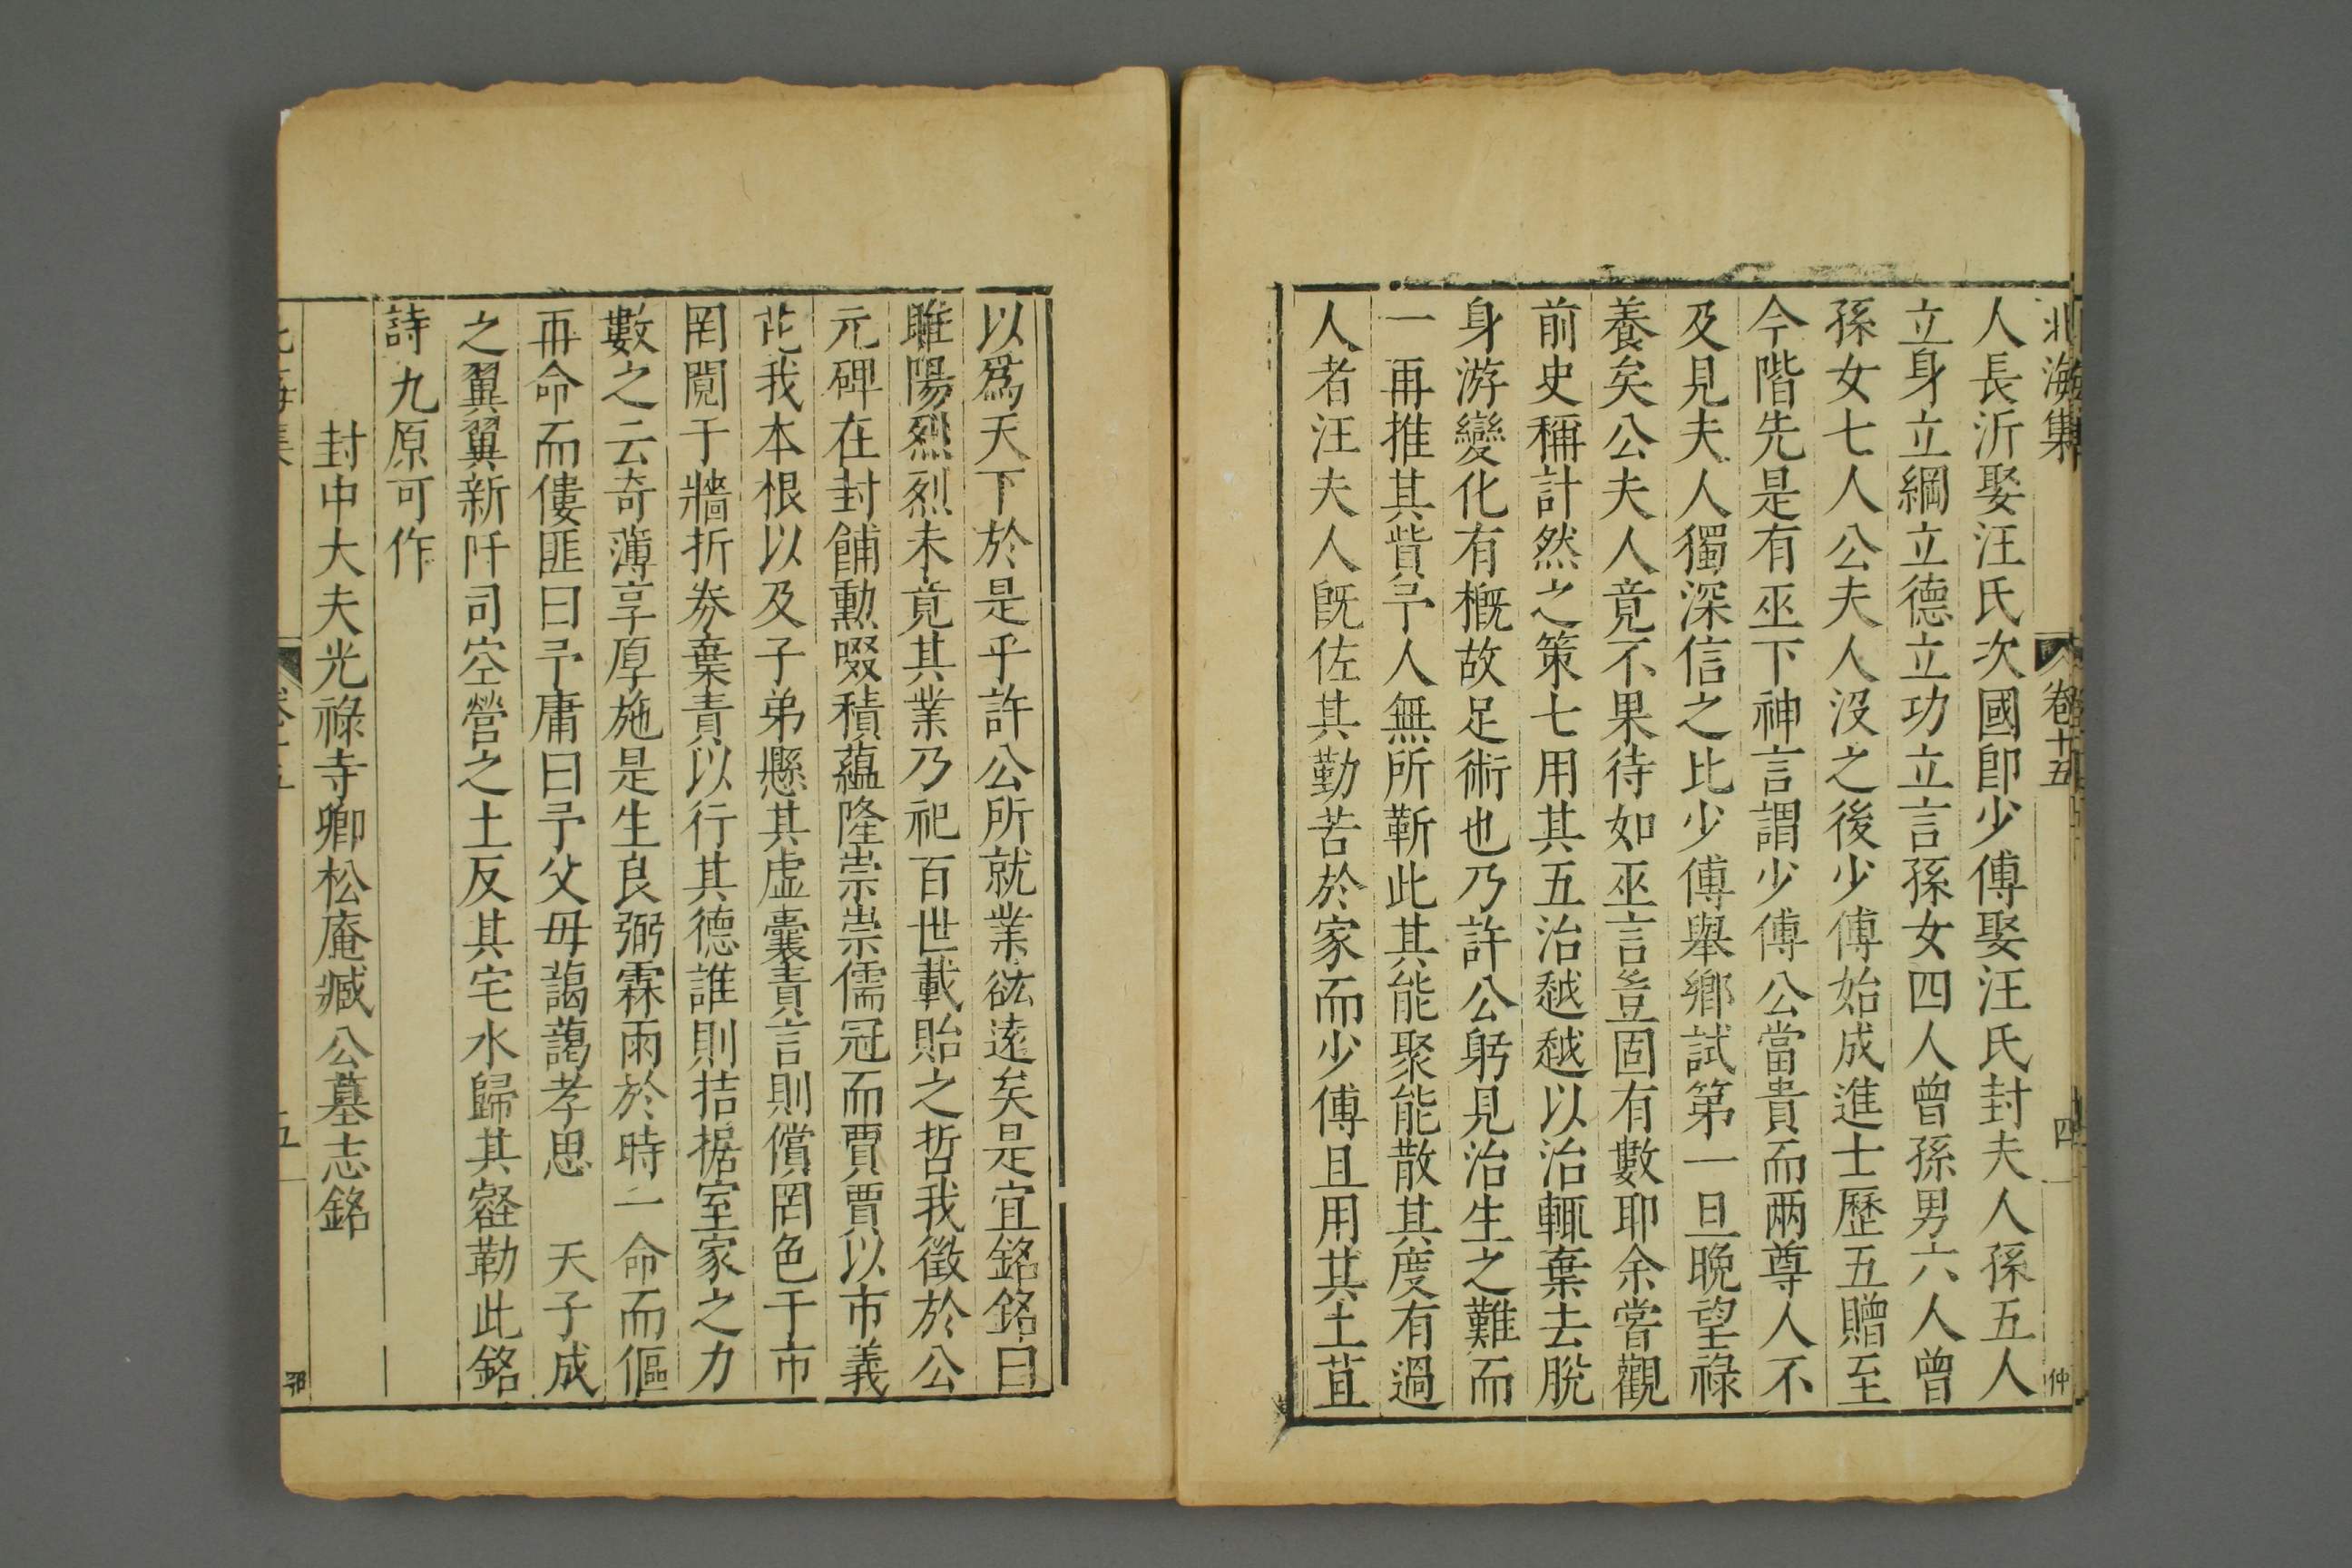 北海集 卷十五 四 仲
人長沂娶汪氏次國卽少傅娶汪氏封夫人孫五人
立身立綱立德立功立言孫女四人曾孫男六人曾
孫女七人公夫人沒之後少傅始成進士歷五贈至
今階先是有巫下神言謂少傅公當貴而兩尊人不
及見夫人獨深信之比少傅舉鄉試第一旦晚望祿
養矣公夫人竟不果待如巫言豈固有數耶余嘗觀
前史稱計然之策七用其五治越越以治輒棄去脫
身游變化有槪故足術也乃許公躬見治生之難而
一再推其貲予人無所靳此其能聚能散其度有過
人者汪夫人旣佐其勤苦於家而少傅且用其土苴
以爲天下於是乎許公所就業谹遠矣是宜銘銘曰
睢陽烈烈未竟其業乃祀百世載貽之哲我徵於公
元碑在封餔勳啜積蘊隆崇崇儒冠而賈賈以市義
芘我本根以及子弟懸其虛囊責言則償罔色于市
罔鬩于牆折券棄責以行其德誰則拮据室家之力
數之云奇薄享厚施是生良弼霖雨於時一命而傴
再命而僂匪曰予庸曰予父母藹藹孝思 天子成
之翼翼新阡司空營之土反其宅水歸其壑勒此銘
詩九原可作
封中大夫光祿寺卿松庵臧公墓志銘